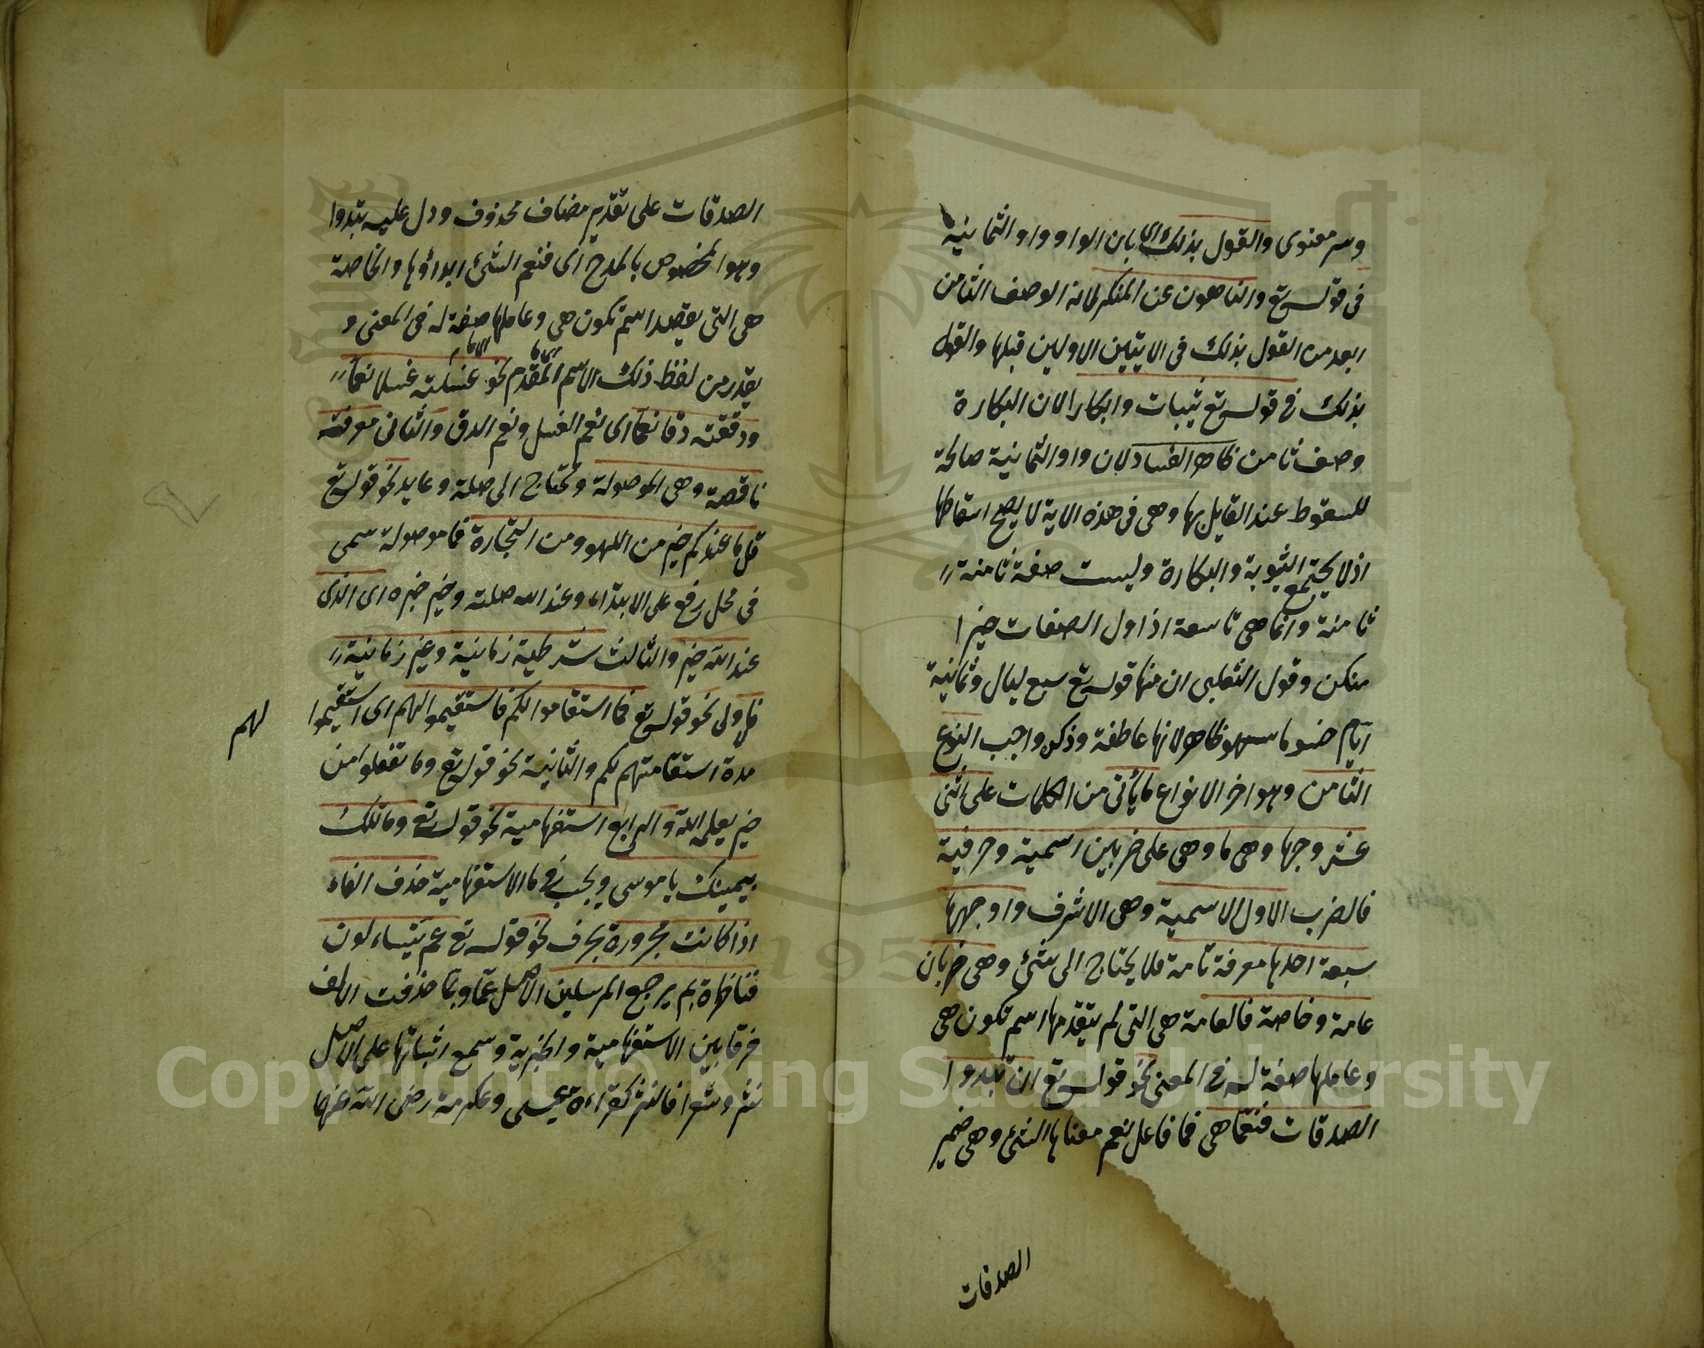 وسر معنوى والقول بذلك اى بان الواو واو الثمانية
فى قوله تع والناهون عن المنكر لانه الوصف الثامن
ابعد من القول بذلك فى الايتين الاولين قبلها والقول
بذلك فى قوله تع ثيبات وابكارا لان البكارة
وصف ثامن ظاهر الفساد لان واو الثمانية صالحة
للسقوط عند القايل بها وهى فى هذه الاية لا يصح اسقاطها
اذ لا يجتمع الثيوبة والبكارة وليست صفة ثامنة
ثامنة وانما هى تاسعة اذ اول الصفات خيرا
منكن وقول الثعلبى ان منها قوله تع سبع ليال وثمانية
ايام حسوما سهو ظاهر لانها عاطفة وذكرها واجب النوع
الثامن وهو اخر الانواع ما ياتى من الكلمات على اثنى
عشر وجها وهى ما وهى على ضربين اسمية وحرفية
فالضرب الاول الاسمية وهى الاشرف واوجهها
سبعة احدها معرفة تامة فلا يحتاج الى شئ وهى ضربان
عامة وخاصة فالعامة هى التى لم يتقدمها اسم تكون هى
وعاملها صفة له فى المعنى نحو قوله تع ان تبدوا
الصدقات فنعما هى فما فاعل نعم معناها الشئ وهى ضمير
الصدقات
الصدقات على تقدير مضاف محذوف ودل عليه تبدوا
وهو المخصوص بالمدح اى فنعم الشئ ابداؤها والخاصة
هى التى يقصد اسم تكون هى وعاملها صفة له فى المعنى و
يقدر من لفظ ذلك الاسم المقدم نحو غسلته غسلا نعما
ودققته دقا نعما اى نعم الغسل ونعم الدق والثانى معرفة
ناقصة وهى الموصولة وتحتاج الى صلة وعايد نحو قوله تع
قل ما عندكم خير من اللهو ومن التجارة فما موصولة سمى
فى محل رفع على الابتداء وعند الله صلته وخير خبره اى الذى
عند الله خير والثالث شرطية زمانية وغير زمانية
فالاولى نحو قوله تع فما استقاموا لكم فاستقيموا لهم اى استقيموا
لهم
مدة استقامتهم لكم والثانية نحو قوله تع وما تفعلوا من
خير يعلمه الله والرابع استفهامية نحو قوله تع وما تلك
بيمينك يا موسى ويجب فى ما الاستفهامية حذف الفاء
اذا كانت مجرورة بحرف نحو قوله تع عم يتساءلون
فناظرة بم يرجع المرسلين الاصل عما وبما حذفت الالف
فرقا بين الاستفهامية والخبرية وسمع اثباتها على الاصل
نثرا وشعرا فالنثر كقراءة عيسى وعكرمة رضى الله عنهما